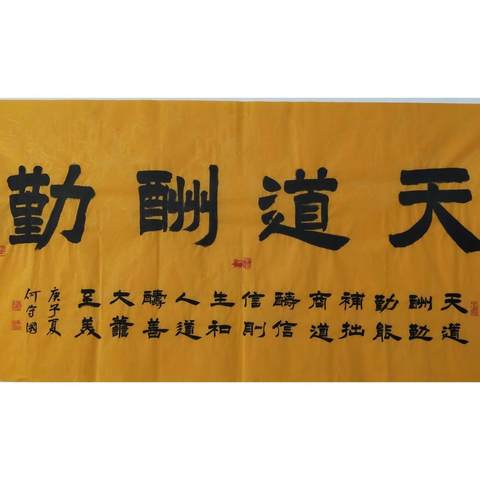 天道酬勤
天道
酬勤
勤能
補拙
商道
醻信
信則
生和
人道
醻善
大
至美
庚子夏
何守國